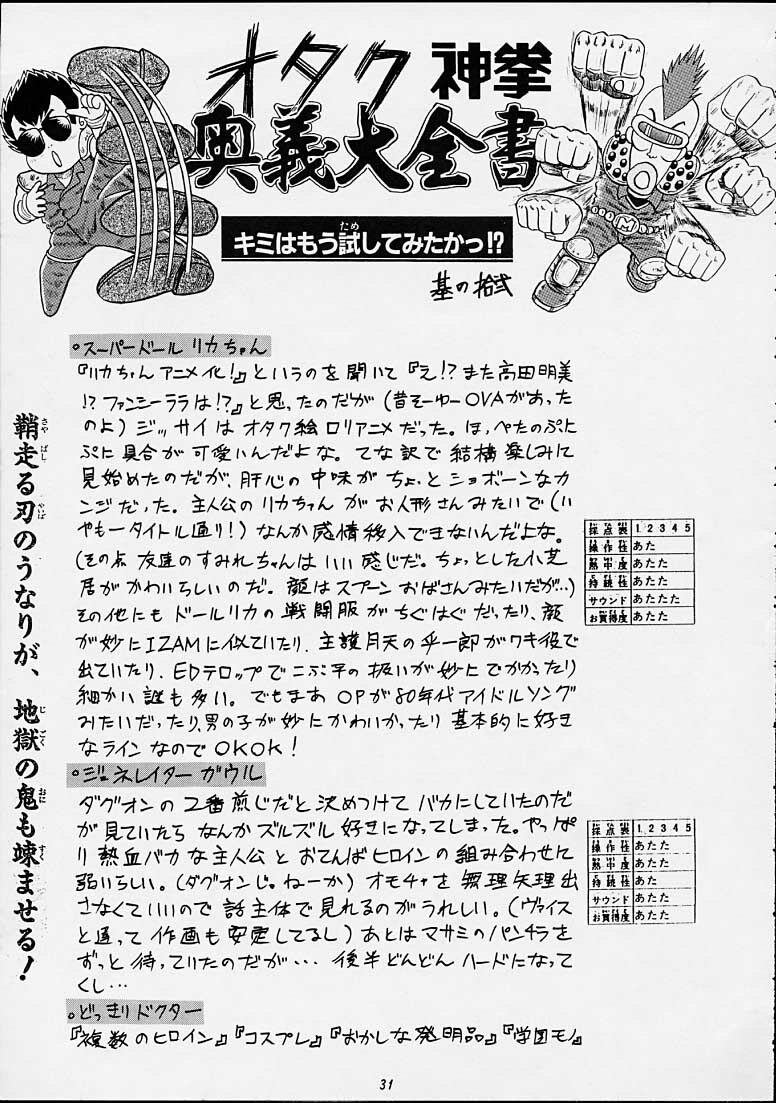 オタク神拳
奥義大全書
キミはもう試してみたかっ!?
基の拾弐
鞘走る刃のうなりが、地獄の鬼も竦ませる!
。スーパードール リカちゃん
『リカちゃんアニメ化!』というのを聞いて『え!?また高田明美
!?ファンシーララは!?』と思ったのだが(昔そーゆーOVAがあった
のよ)ジッサイはオタク絵ロリアニメだった。ほっぺたのぷに
ぷに具合が可愛いんだよな。てな訳で結構楽しみに
見始めたのだが、肝心の中味がちょっとショボーンなカ
ンジだった。主人公のリカちゃんがお人形さんみたいで(い
やもータイトル通り!)なんか感情移入できないんだよな。
(その点 友達のすみれちゃんはいい感じだ。ちょっとした小芝
居がかわいらしいのだ。顔はスプーンおばさんみたいだが…)
その他にもドールリカの戦闘服がちぐはぐだったり、顔
が妙にIZAMに似ていたり、主護月天の伞一郎がワキ役で
出ていたり、EDテロップでこぶ平の扱いが妙にでかかったり
細かい謎も多い。でもまあOPが80年代アイドルソング
みたいだったり、男の子が妙にかわいかったり基本的に好き
なラインなのでOKOK!
採点表 1 2 3 4 5
操作性 あた
熱中度 あたた
持続性 あた
サウンド あたたた
お買得度 あたた
。ジェネレイターガウル
ダグオンの二番煎じだと決めつけてバカにしていたのだ
が見ていたらなんかズルズル好きになってしまった。やっぱ
り熱血バカな主人公とおてんばヒロインの組み合わせに
弱いらしい。(ダグオンじゃねーか)オモチャを無理矢理出
さなくていいので話主体で見れるのがうれしい。(ヴァイス
と違って作画も安定してるし)あとはマサミのパンチラを
ずっと待っていたのだが… 後半どんどんハードになって
くし…
採点表 1 2 3 4 5
操作性 あたた
熱中度 あたた
持続性 あた
サウンド あたた
お買得度 あたた
。どっきりドクター
『複数のヒロイン』『コスプレ』『おかしな発明品』『学園モノ』
31